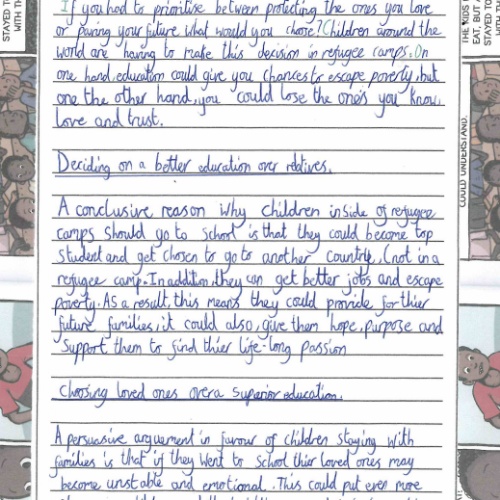 If you had to prioritise between protecting the ones you love
or paving your future what would you chose? Children around the
world are having to make this decision in refugee camps. On
one hand, education could give you chances to escape poverty, but
one the other hand, you could lose the one's you know,
love and trust.
Deciding on a better education over relatives.
A conclusive reason why children inside of refugee
camps should go to school is that they could become top
student and get chosen to go to another country, (not in a
refugee camp. In addition, they can get better jobs and escape
poverty. As a result, this means they could provide for thier
future families, it could also, give them hope, purpose and
support them to find thier life-long passion
Choosing loved ones over a superior education.
A persuasive arguement in favour of children staying with
families is that if they went to school thier loved ones may
become unstable and emotional. This could put even more
STAYED TO
WITH TH
THE KIDS
EAT, BUT A
STAYED TO
WITH TH
COULD UNDERSTAND.